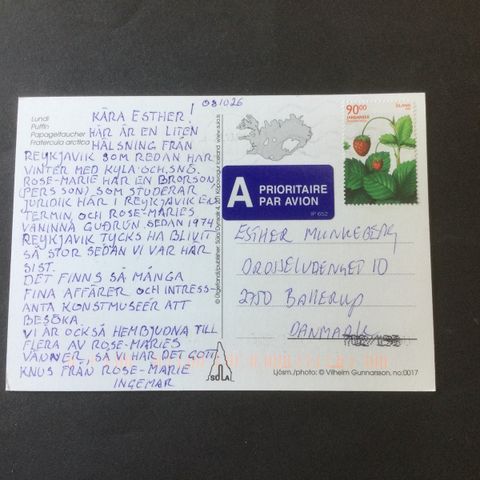 Lundi
Puffin
Papageitaucher
Fratercula arctica
081026
KÄRA ESTHER!
HÄR ÄR EN LITEN
HÄLSNING FRÅN
REYKJAVIK SOM REDAN HAR
VINTER MED KYLA OCH SNÖ.
ROSE-MARIE HAR EN BRORSON,
(PERSSON) SOM STUDERAR
JURIDIK HÄR I REYKJAVIK EN
TERMIN OCH ROSE-MARIES
VÄNINNA GUÐRÚN SEDAN 1974
REYKJAVIK TYCKS HA BLIVIT
SÅ STOR SEDAN VI VAR HÄR
SIST.
DET FINNS SÅ MÅNGA
FINA AFFÄRER OCH INTRESS-
ANTA KONSTMUSEER ATT
BESÖKA.
VI ÄR OCKSÅ HEMBJUDNA TILL
FLERA AV ROSE-MARIES
VÄNNER, SÅ VI HAR DET GOTT
KNUS FRÅN ROSE-MARIE
INGEMAR
SÓLA
90.00
ÍSLAND
A PRIORITAIRE
PAR AVION
IP 652
ESTHER MUNKEBERG
10
2750 BALLERUP
DANMARK
Ljósm./photo: © Vilhelm Gunnarsson, no:0017